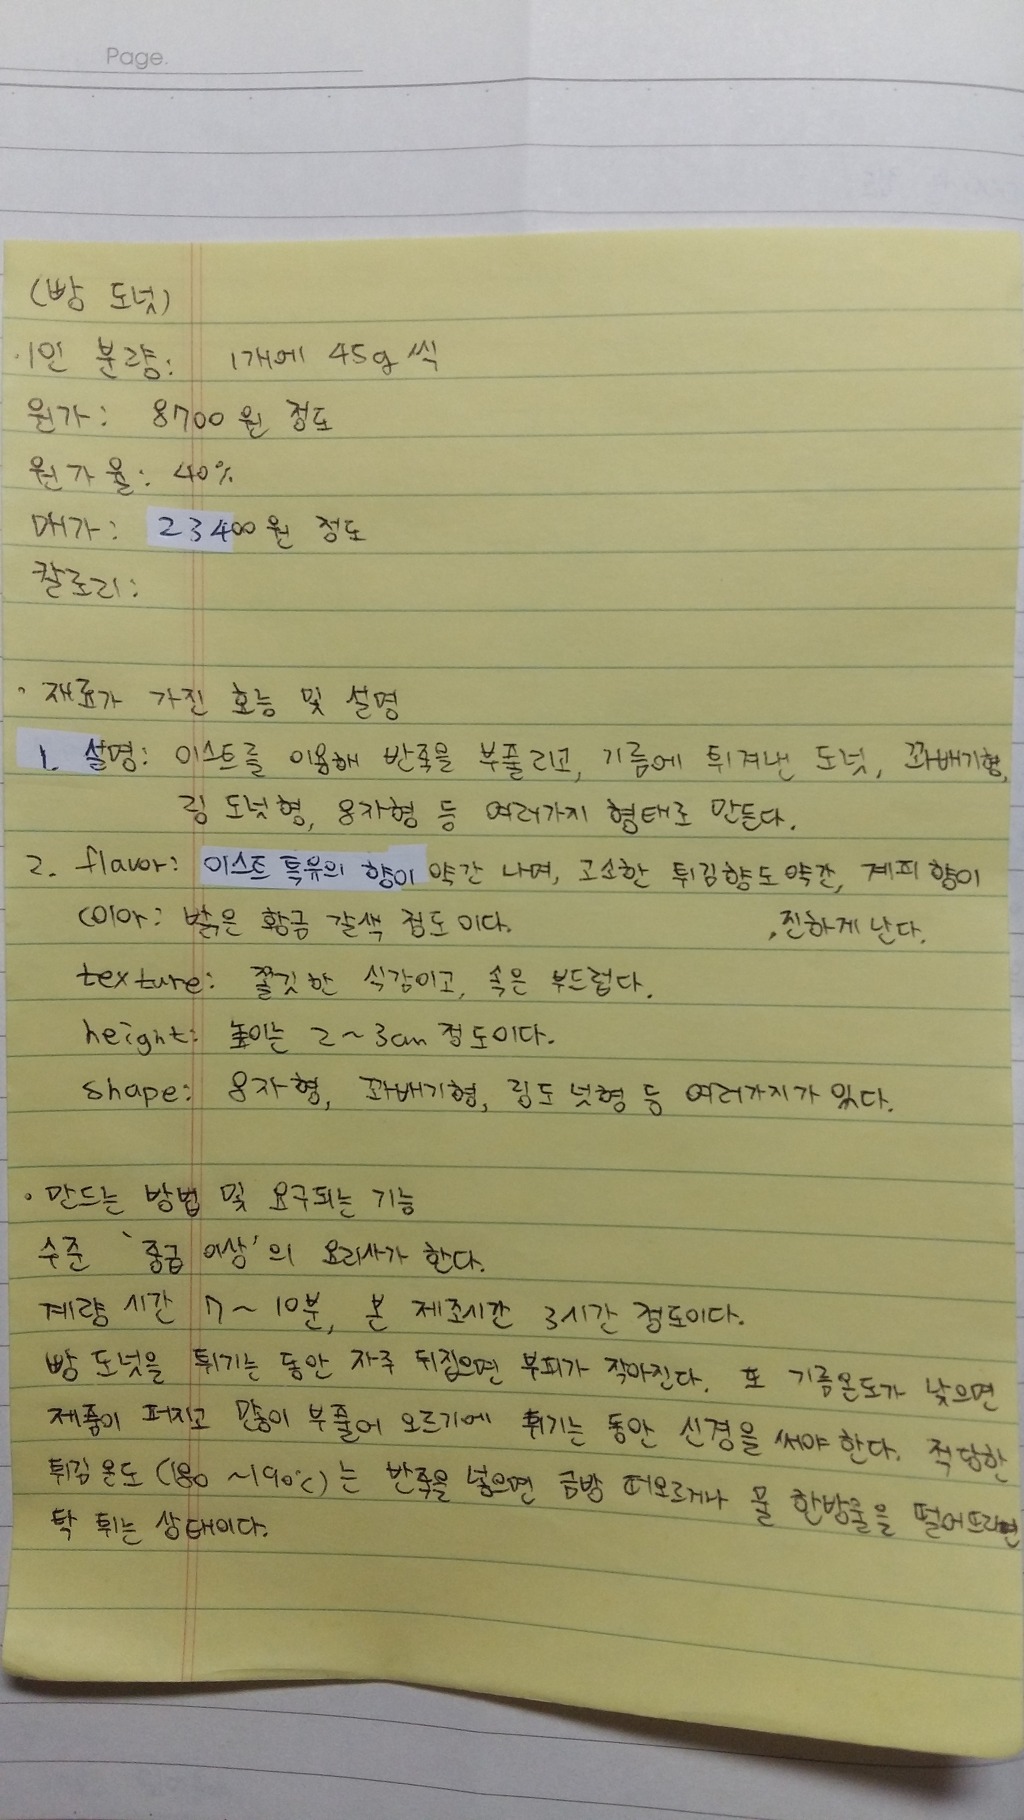 Page.
(빵 도넛)
· 1인 분량: 1개에 45g씩
원가: 8700원 정도
원가율: 40%
매가: 23400원 정도
칼로리:
· 재료가 가진 효능 및 설명
1. 설명: 이스트를 이용해 반죽을 부풀리고, 기름에 튀겨낸 도넛, 꽈배기형,
링 도넛형, 8자형 등 여러가지 형태로 만든다.
2. flavor: 이스트 특유의 향이 약간 나며, 고소한 튀김향도 약간, 계피향이
, 진하게 난다.
color: 밝은 황금 갈색 정도이다.
texture: 쫄깃한 식감이고, 속은 부드럽다.
height: 높이는 2~3cm 정도이다.
shape: 8자형, 꽈배기형, 링도넛형 등 여러가지가 있다.
· 만드는 방법 및 요구되는 기능
수준 '중급 이상'의 요리사가 한다.
계량 시간 7~10분, 본 제조시간 3시간 정도이다.
빵 도넛을 튀기는 동안 자주 뒤집으면 부피가 작아진다. 또 기름온도가 낮으면
제품이 퍼지고 많이 부풀어 오르기에 튀기는 동안 신경을 써야 한다. 적당한
튀김온도(180~190℃)는 반죽을 넣으면 금방 떠오르거나 물 한방울을 떨어뜨리면
탁 튀는 상태이다.